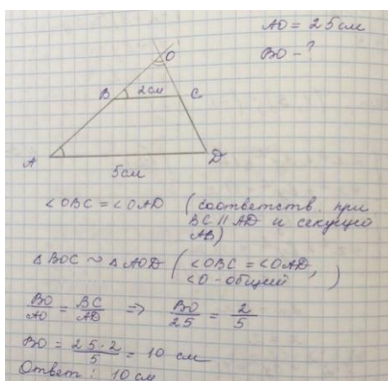 AO = 25 см
BO - ?
O
B 2 см C
A D
5 см
∠OBC = ∠OAD (соответств. при
BC || AD и секущей
AB)
△BOC ~ △AOD (∠OBC = ∠OAD,
∠O - общий)
BO/AO = BC/AD => BO/25 = 2/5
BO = 25·2/5 = 10 см
Ответ: 10 см